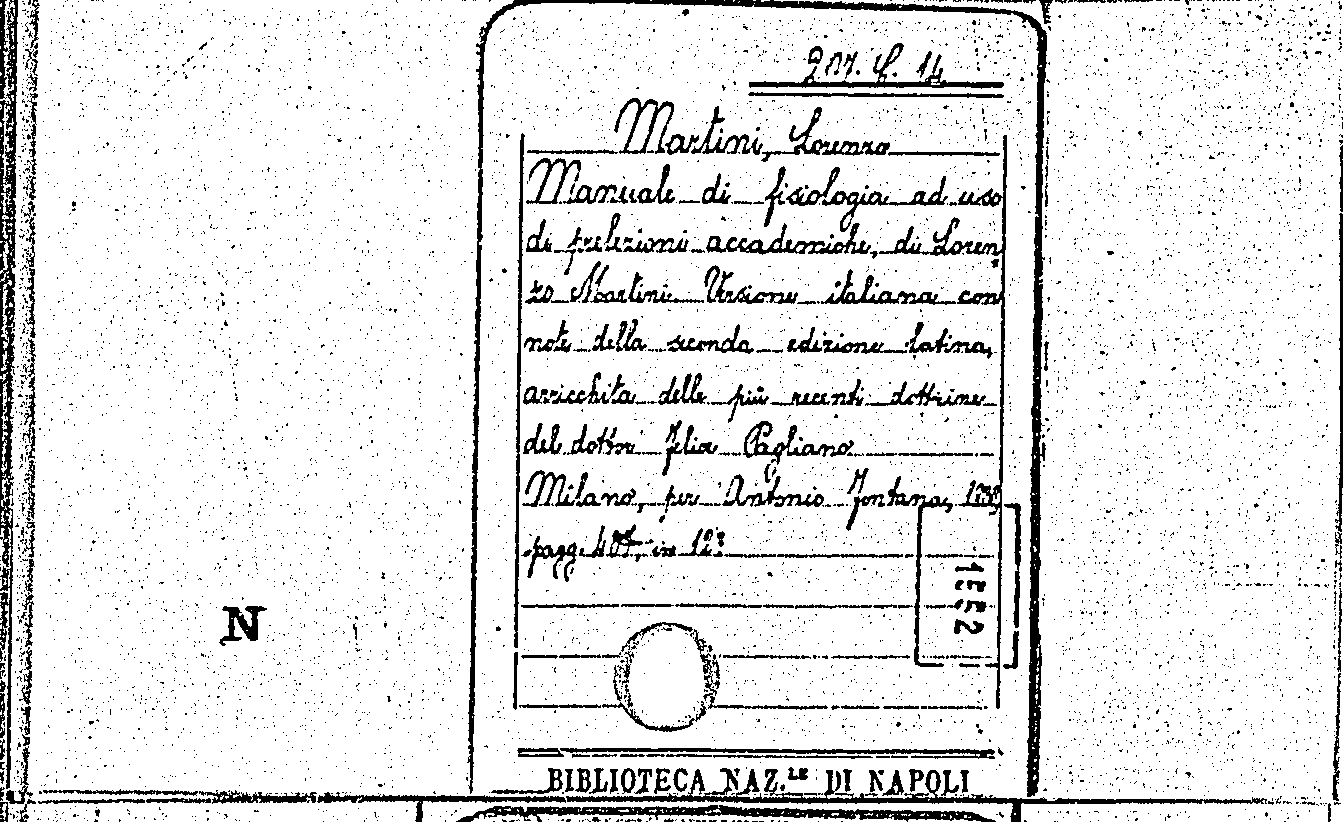 207. C. 14
Martini, Lorenzo
Manuale di fisiologia ad uso
di prelezioni accademiche, di Loren-
zo Martini. Versione italiana con
note della seconda edizione latina,
arricchita delle più recenti dottrine
del dottor Felice Pagliano
Milano, per Antonio Fontana,
pagg. 407, in 12º
N
1552
BIBLIOTECA NAZ.LE DI NAPOLI